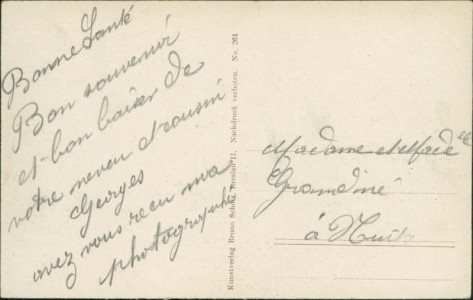 Bonne Santé
Bon souvenir
et bon baiser de
votre neveu et cousin
Georges
avez vous reçu ma
photographie
Kunstverlag Bruno Schulz, II, Nachdruck verboten. No. 261
Madame et Made
à Nuits